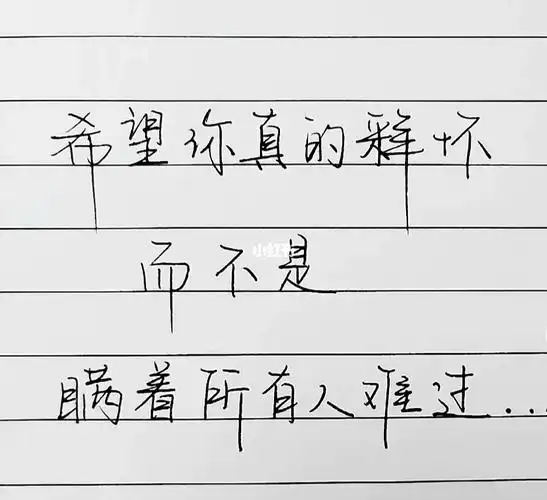 希望你真的释怀
而不是
小红书
瞒着所有人难过...